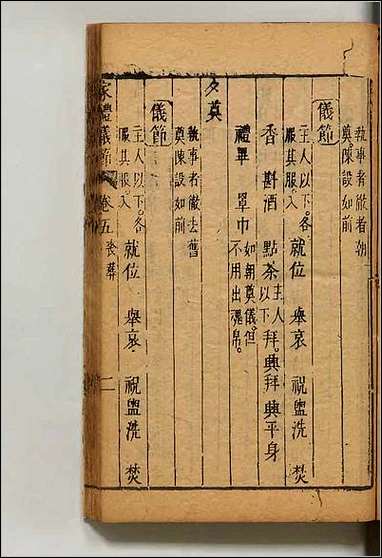 執事者徹者朝
奠陳設如前
儀節
主人以下各
服其服入
就位 舉哀 祝盥洗 焚
香 斟酒 點茶 主人
以下 拜興拜興平身
禮畢 罩巾 如朝奠儀但
不用出魂帛
夕奠
執事者徹去舊
奠陳設如前
儀節
主人以下各
服其服入
就位 舉哀 祝盥洗 焚
家禮儀節 卷五 喪葬 二